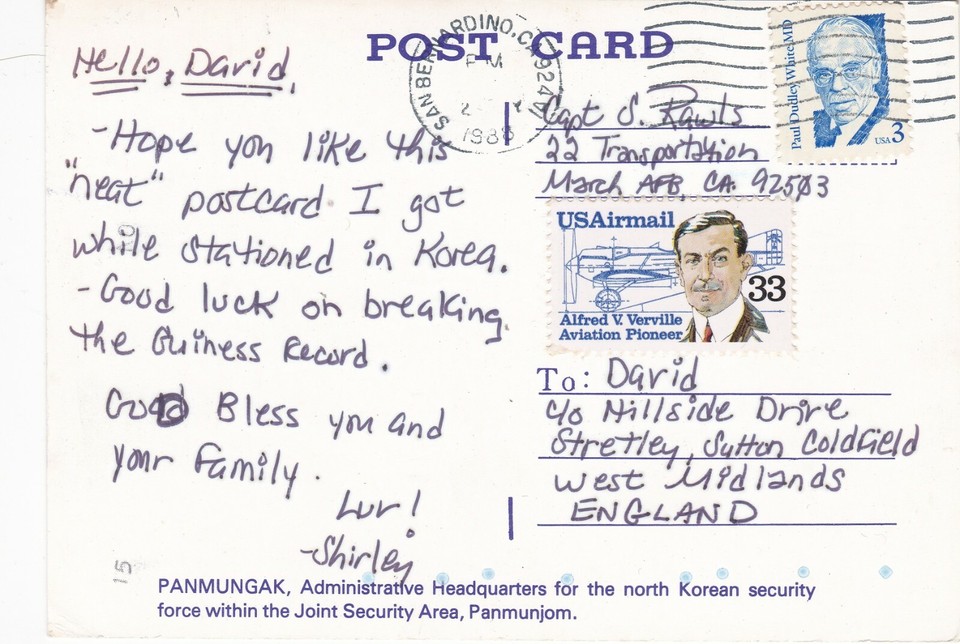 POST CARD
SAN BERNARDINO, CA 924
PM
2
1988
Paul Dudley White MD
USA 3
Hello, David,
-Hope you like this
"neat" postcard I got
while stationed in Korea.
-Good luck on breaking
the Guiness Record.
God Bless you and
your Family.
Luv!
-Shirley
Capt S. Rawls
22 Transportation
March AFB, CA. 92503
USAirmail
33
Alfred V. Verville
Aviation Pioneer
To: David
c/o Hillside Drive
Stretley, Sutton Coldfield
West Midlands
ENGLAND
15
PANMUNGAK, Administrative Headquarters for the north Korean security
force within the Joint Security Area, Panmunjom.